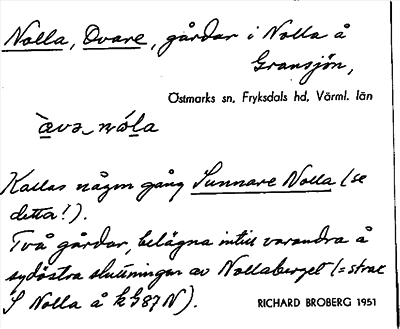 Nolla, Övare, gårdar i Nolla å
Gransjön,
Östmarks sn, Fryksdals hd, Värml. län
àvə nóla
Kallas någon gång Sunnare Nolla (se
detta!).
Två gårdar, belägna intill varandra å
sydöstra sluttningen av Nollaberget (= strax
S Nolla å k G87N).
RICHARD BROBERG 1951